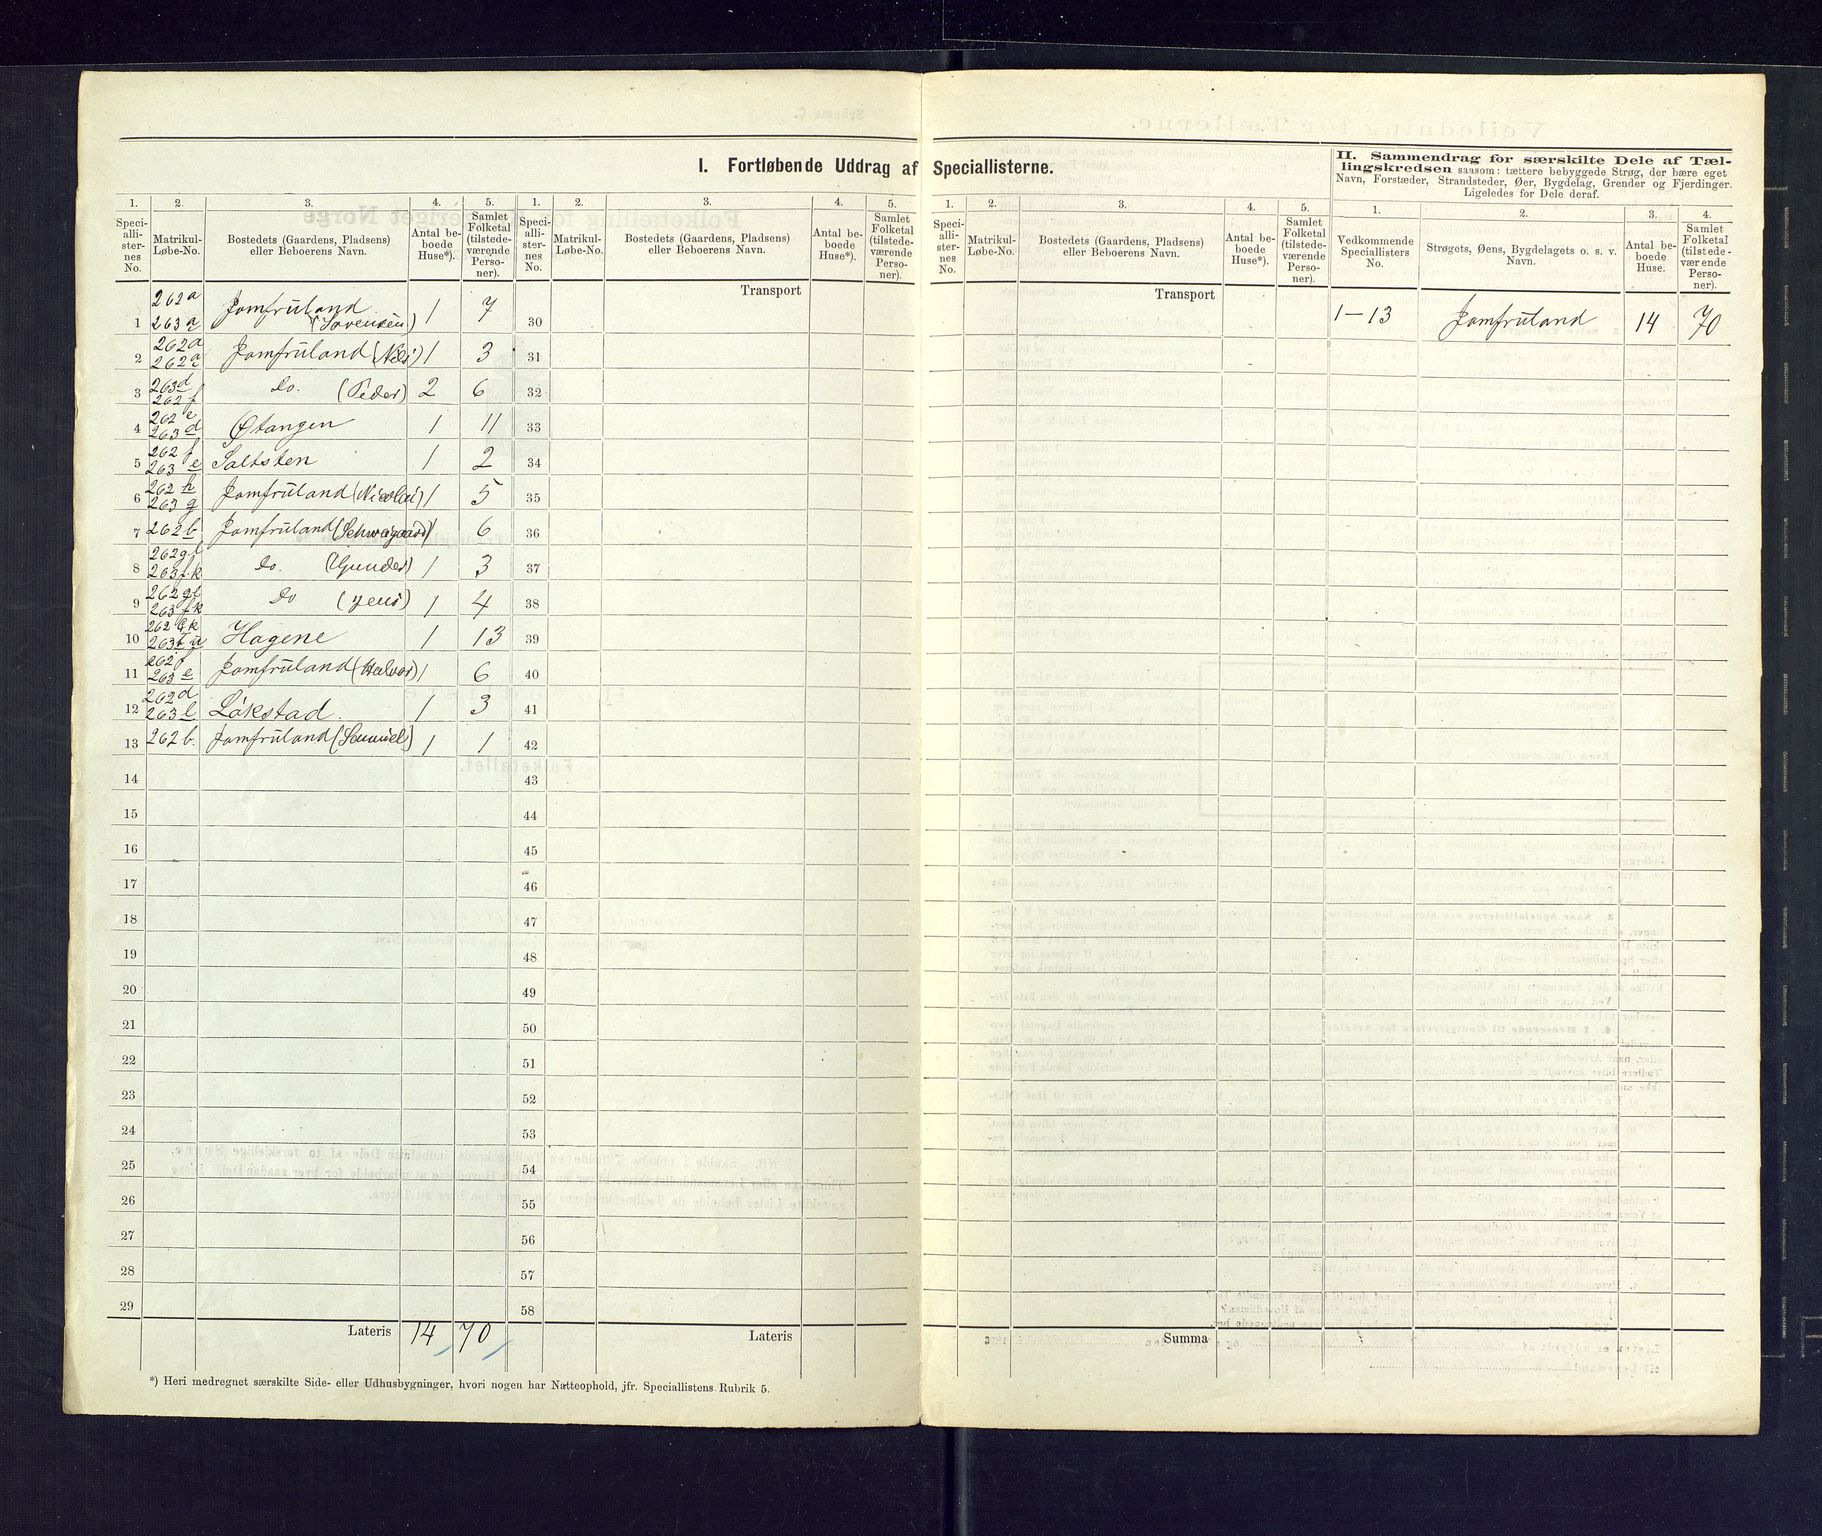 I. Fortløbende Uddrag af Speciallisterne.
II. Sammendrag for særskilte Dele af Tæl-
lingskredsen saasom: tættere bebyggede Strøg, der bære eget
Navn, Forstæder, Strandsteder, Øer, Bygdelag, Grender og Fjerdinger.
Ligeledes for Dele deraf.
1. 2. 3. 4. 5. 1. 2. 3. 4. 5. 1. 2. 3. 4. 5. 1. 2. 3. 4.
Speciallisternes No.
Matrikul-Løbe-No.
Bostedets (Gaardens, Pladsens) eller Beboerens Navn.
Antal beboede Huse*).
Samlet Folketal (tilstedeværende Personer).
Speciallisternes No.
Matrikul-Løbe-No.
Bostedets (Gaardens, Pladsens) eller Beboerens Navn.
Antal beboede Huse*).
Samlet Folketal (tilstedeværende Personer).
Speciallisternes No.
Matrikul-Løbe-No.
Bostedets (Gaardens, Pladsens) eller Beboerens Navn.
Antal beboede Huse*).
Samlet Folketal (tilstedeværende Personer).
Vedkommende Speciallisters No.
Strøgets, Øens, Bygdelagets o. s. v. Navn.
Antal beboede Huse.
Samlet Folketal (tilstedeværende Personer).
Transport Transport
1 262a 263a Jomfruland (Sorensen) 1 7 30 1-13 Jomfruland 14 70
2 262a 262a Jomfruland (Nils) 1 3 31
3 263d 262f Do. (Peder) 2 6 32
4 262e 263d Østangen 1 11 33
5 262f 263e Saltsten 1 2 34
6 262h 263g Jomfruland (Nicolai) 1 5 35
7 262b Jomfruland (Schweigaard) 1 6 36
8 262gl 263f.k Do. (Gunder) 1 3 37
9 262gl 263fk Do (Jens) 1 4 38
10 Hagene 1 13 39
11 262f 263e Jomfruland (Halvor) 1 6 40
12 262d 263l Løkstad. 1 3 41
13 262b. Jomfruland (Samuel) 1 1 42
14 43
15 44
16 45
17 46
18 47
19 48
20 49
21 50
22 51
23 52
24 53
25 54
26 55
27 56
28 57
29 58
Lateris 14 70 Lateris Summa
*) Heri medregnet særskilte Side- eller Udhusbygninger, hvori nogen har Natteophold, jfr. Speciallistens Rubrik 5.